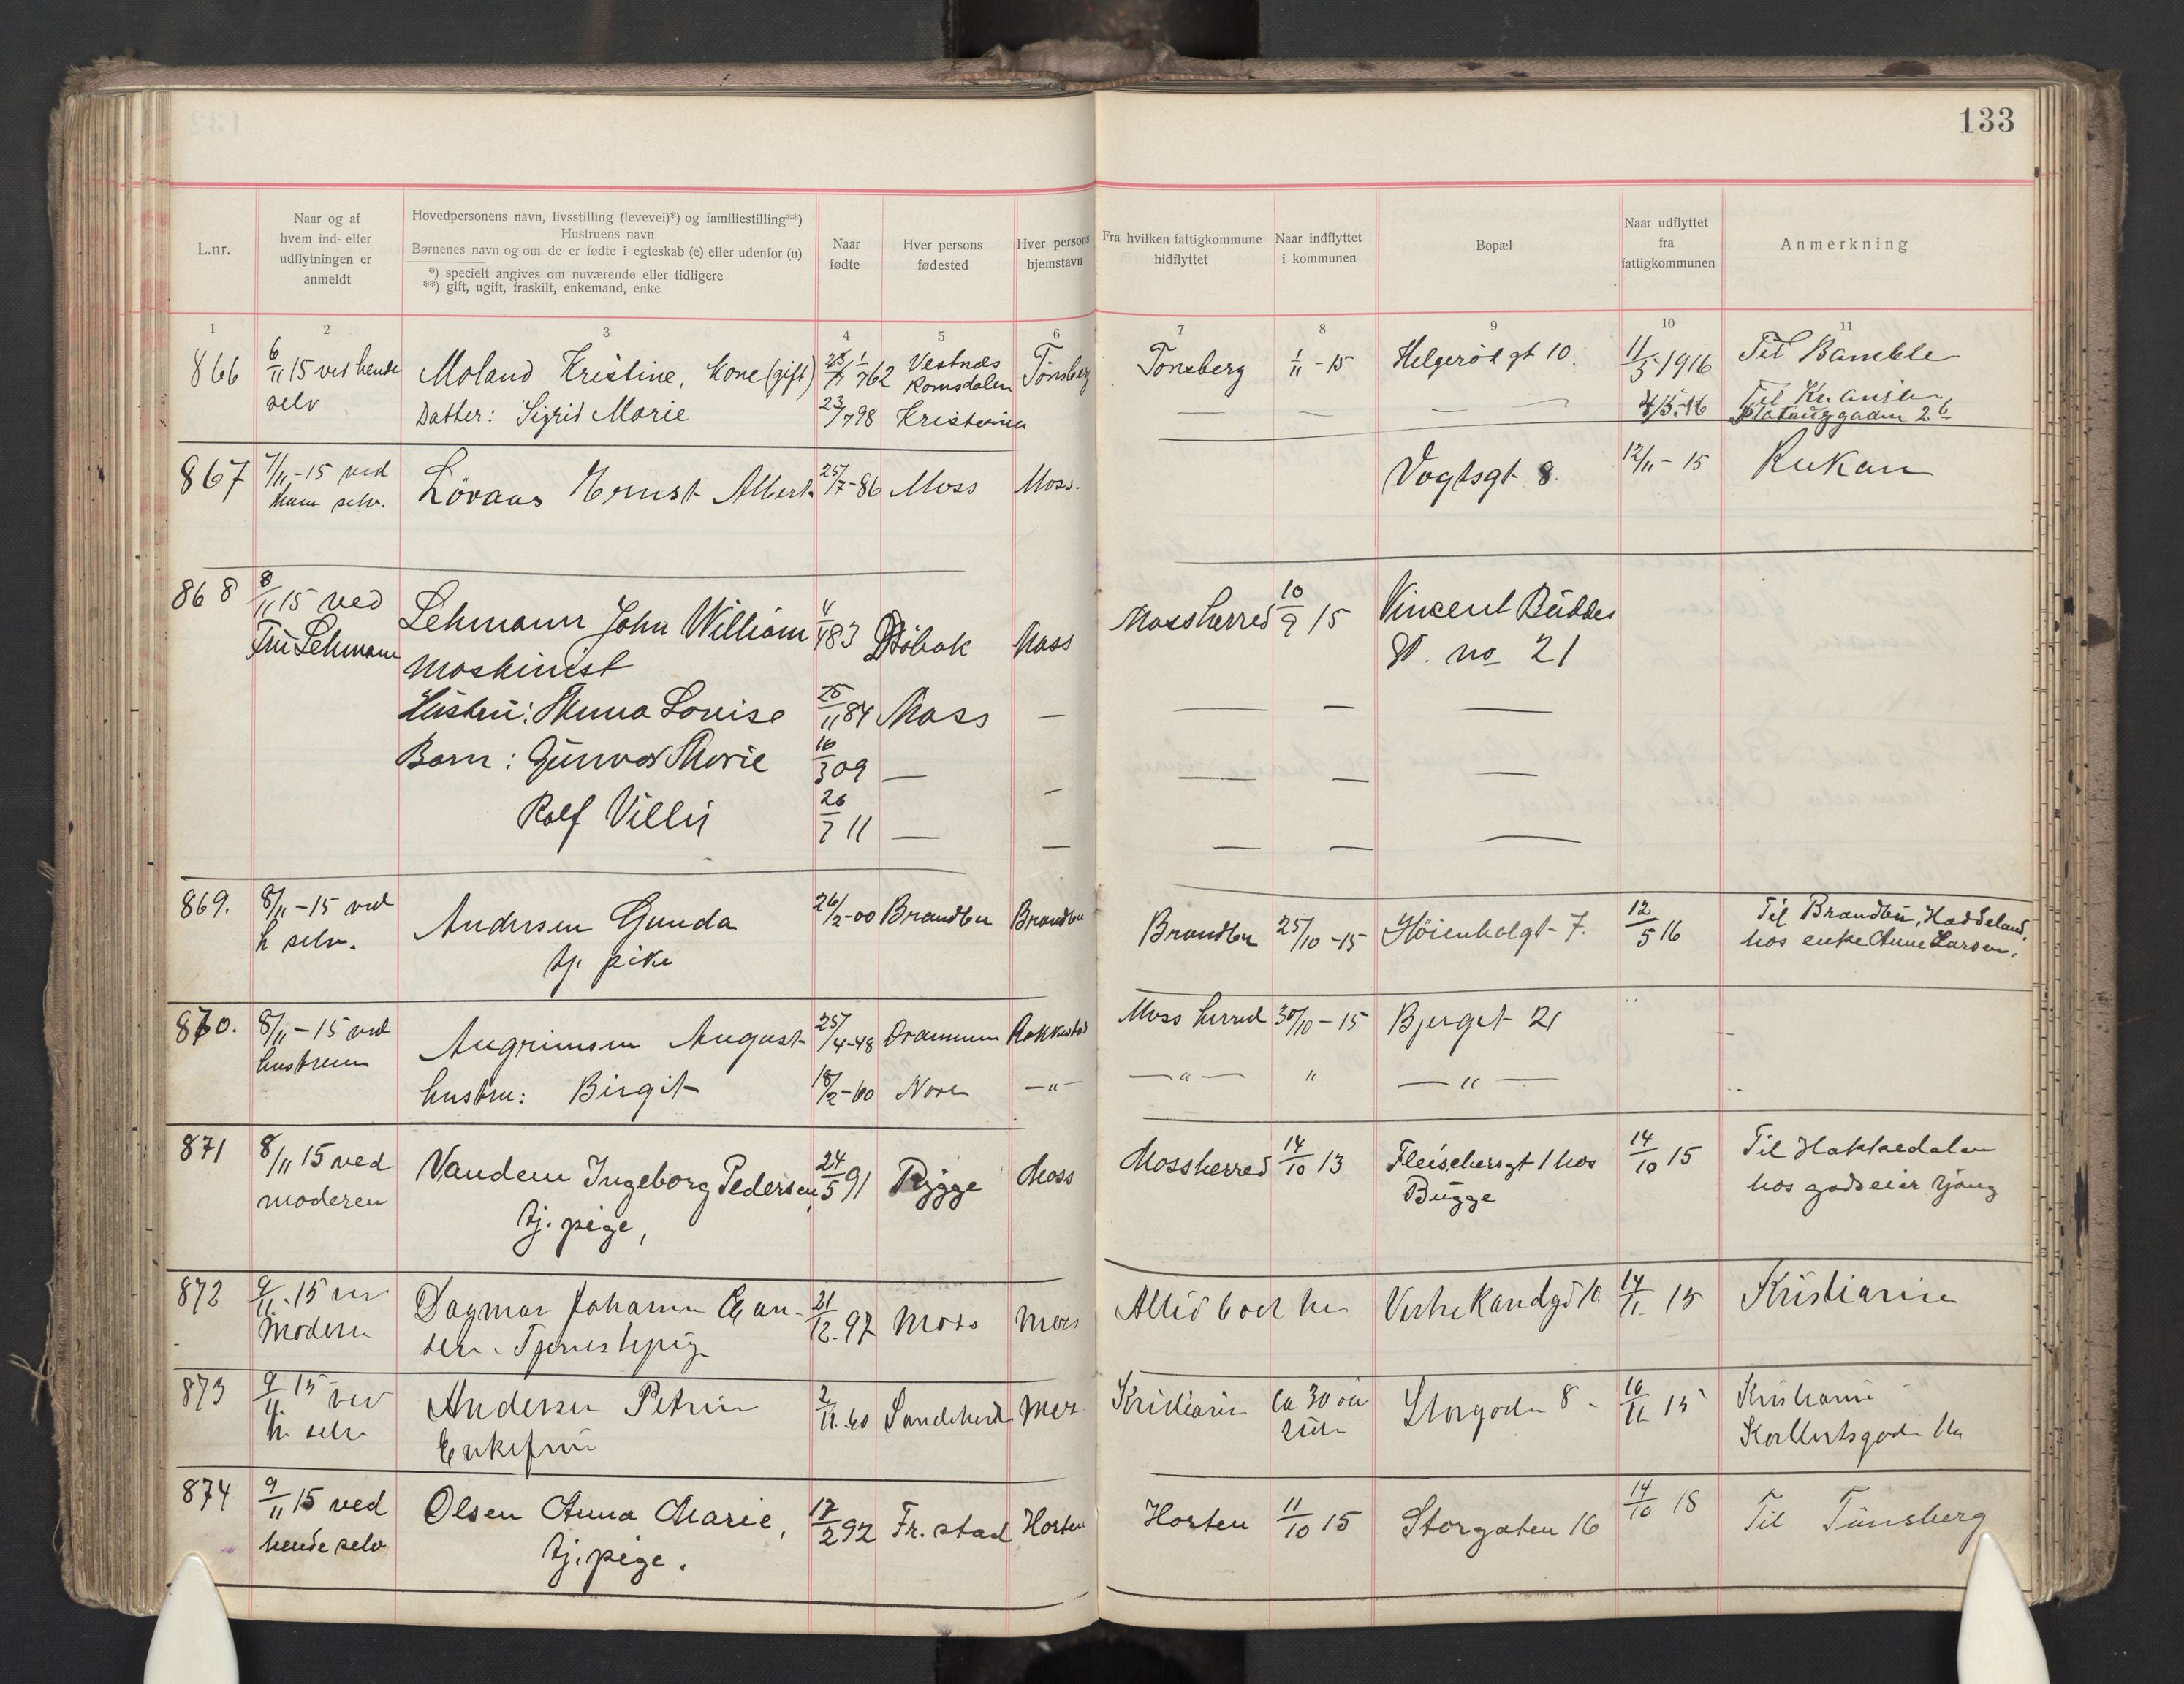 133
L.nr.
Naar og af hvem ind- eller udflytningen er anmeldt
Hovedpersonens navn, livsstilling (levevei)*) og familiestilling**)
Hustruens navn
Børnenes navn og om de er fødte i egteskab (e) eller udenfor (u)
*) specielt angives om nuværende eller tidligere
**) gift, ugift, fraskilt, enkemand, enke
Naar fødte
Hver persons fødested
Hver persons hjemstavn
Fra hvilken fattigkommune hidflyttet
Naar indflyttet i kommunen
Bopæl
Naar udflyttet fra fattigkommunen
Anmerkning
1 2 3 4 5 6 7 8 9 10 11
866 6/11 15 ved hende Moland Kristine, kone (gift) 62 Vestnæs Tønsberg Tønsberg 1/11 - 15 Helgerødgt 10. 11/5 1916 Til Bamble
selv Romsdalen
Datter: Sigrid Marie 23/7 98 Kristiania — — — 4/5-16 Til
867 7/11-15 ved Løvaas Ernst Albert 25/7-86 Moss Moss. Vogtsgt 8. 12/11 - 15 Rukan
ham selv.
868 8/11 15 ved Lehmann John William 4/4 83 Drøbak Moss Mossherred 10/9 15 Vincent Buddes
Fru Lehmann Maskinist Gt. no 21
Hustru: Anna Lovise 25/11 84 Moss — — — —
Barn: Gunvor Marie 16/3 09 — — — — —
Rolf Villy 26/7 11 — — — — —
869. 8/11-15 ved Andersen Gunda 26/2-00 Brandbu Brandbu Brandbu 25/10-15 Høienholgt 7. 12/5 16 Til Brandbu, Haddeland,
h selv. tj. pike hos enke Anne Larsen.
870. 8/11-15 ved Angrimsen August 25/4-48 Drammen Rakkestad Moss herred 30/10-15 Bjerget 21
hustruen hustru: Birgit 18/2-60 Nore —"— —"— " —"—
871 8/11 15 ved Vandem Ingeborg Pedersen, 24/5 91 Rygge Moss Mossherred 14/10 13 Fleischersgt 1 hos 14/10 15 Til Hakkedalen
moderen tj. pige, Bugge hos godseier
872 9/11.15 ved Dagmar Johanne 21/12.97 Moss Moss Altid boet her 14/11 15 Kristiania
Moderen Tjenestepige
873 9/11 15 ved Andersen Petrine 2/11.60 Moss Kristiania ca 30 aar Storgaden 8 - 10/11 15 Kristiania
h. selv Enkefru siden
874 9/11 15 ved Olsen Anna Marie, 17/2 92 Fr.stad Horten Horten 11/10 15 Storgaten 16 14/10 15 Til Tønsberg
hende selv tj. pige.